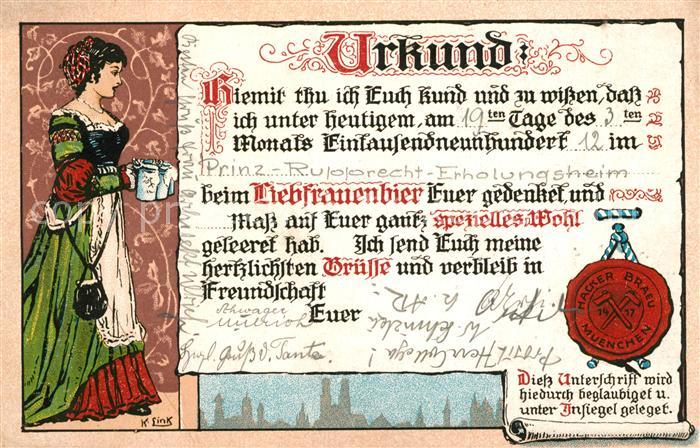 Urkund:
Hiemit thu ich Euch kund und zu wißen, daß
ich unter heutigem, am 19ten Tage des 3ten
Monats Eintausendneunhundert 12 im
Prinz-Rupprecht-Erholungsheim
beim Liebfrauenbier Euer gedenket und
Maß auf Euer gantz spezielles Wohl
geleeret hab. Ich send Euch meine
hertzlichsten Grüsse und verbleib in
Freundschaft
Euer
Schwager
Herzl. Gruß v. Tante
Prosit Herr Collega!
HACKER BRAEU
14 17
MUENCHEN
Dieß Unterschrift wird
hiedurch beglaubiget u.
unter Insiegel geleget.
K. Sink